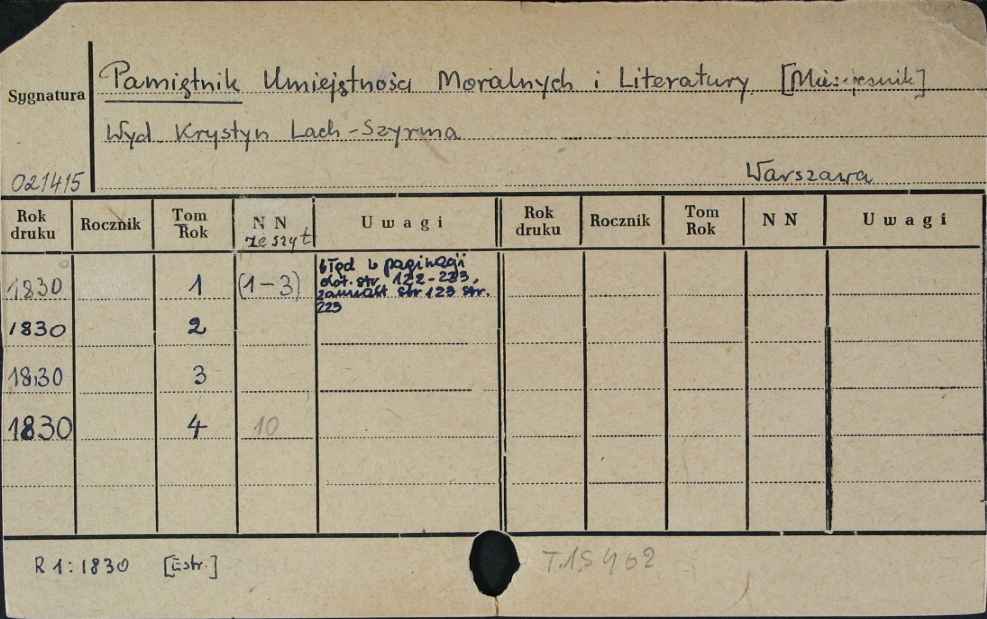 Pamiętnik Umiejętności Moralnych i Literatury [Miesięcznik]
Sygnatura
Wyd. Krystyn Lach-Szyrma
021415
Warszawa
Rok druku Rocznik Tom Rok NN zeszyt Uwagi Rok druku Rocznik Tom Rok NN Uwagi
1830 1 (1-3) błąd w paginacji
dot. str. 122-223,
zamiast str 123 str.
223
1830 2
1830 3
1830 4 10
R 1:1830 [Estr.]